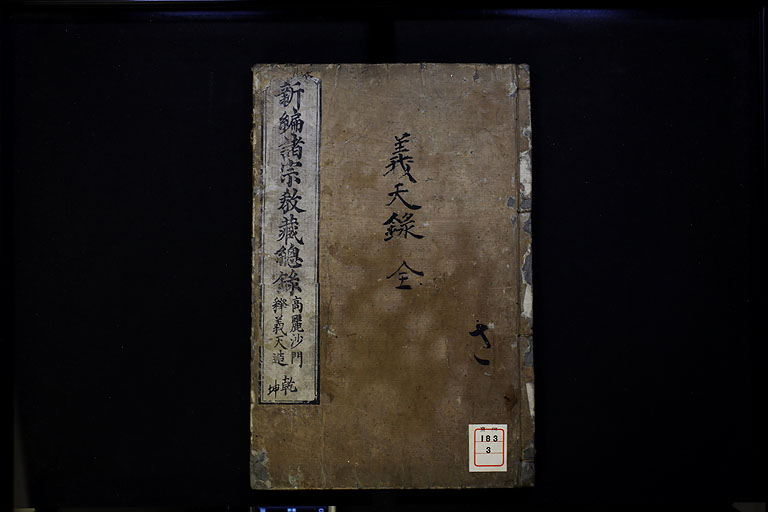 義天錄 全
新編諸宗教藏總錄
高麗沙門
釋義天造
乾
坤
183
3